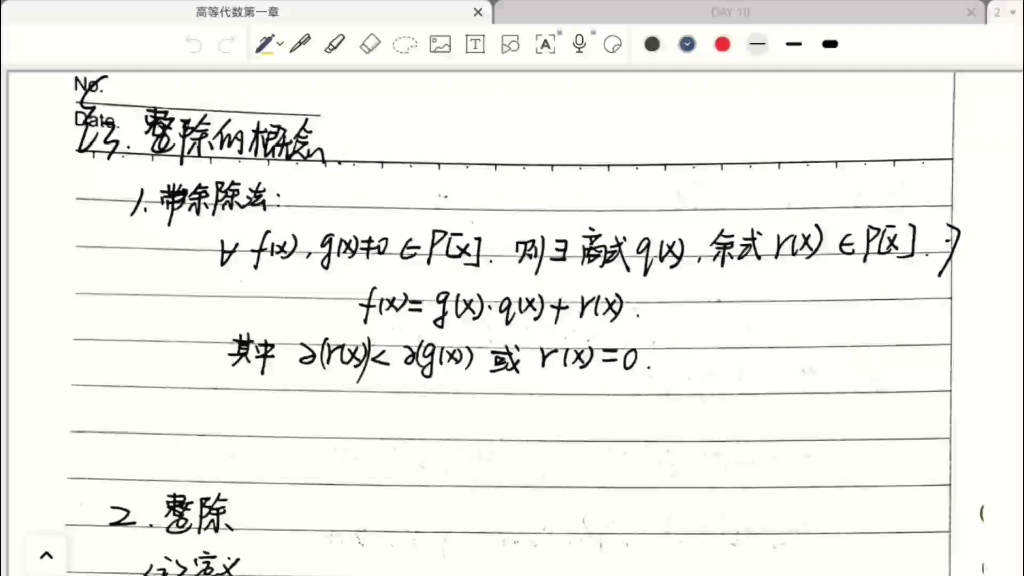 高等代数第一章
DAY 10
2
No.
Date
§3. 整除的概念.
1. 带余除法:
∀ f(x), g(x)≠0 ∈ P[x]. 则∃ 商式 q(x), 余式 r(x) ∈ P[x].
f(x)= g(x)·q(x)+ r(x).
其中 ∂(r(x))< ∂(g(x)) 或 r(x)=0.
2. 整除
定义